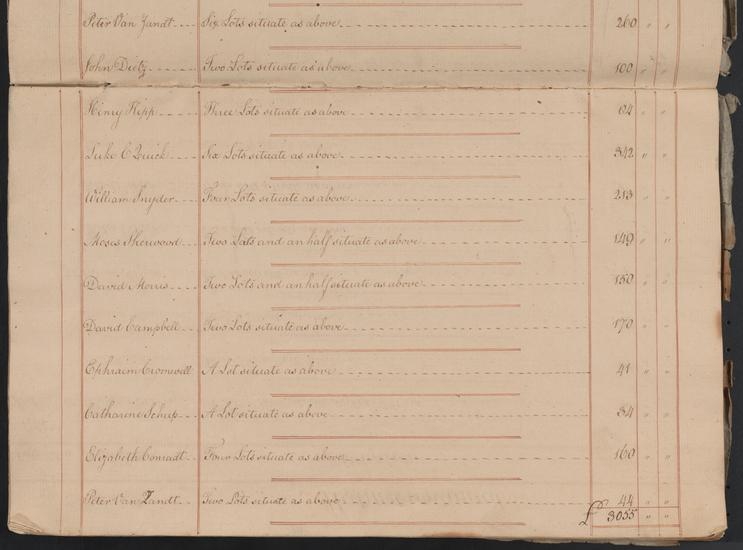 Peter Van Zandt Six Lots situate as above 260 " "
John Dietz Two Lots situate as above 100 " "
Henry Kipp Three Lots situate as above 64 " "
Luke C Quick Six Lots situate as above 342 " "
William Snyder Four Lots situate as above 213 " "
Moses Sherwood Two Lots and an half situate as above 149 " "
David Morris Two Lots and an half situate as above 150 " "
David Campbell Two Lots situate as above 170 " "
Ephraim Cromwell A Lot situate as above 41 " "
Catharine Schup A Lot situate as above 34 " "
Elizabeth Conradt Four Lots situate as above 160 " "
Peter Van Zandt Two Lots situate as above 44 " "
£ 3055 " "